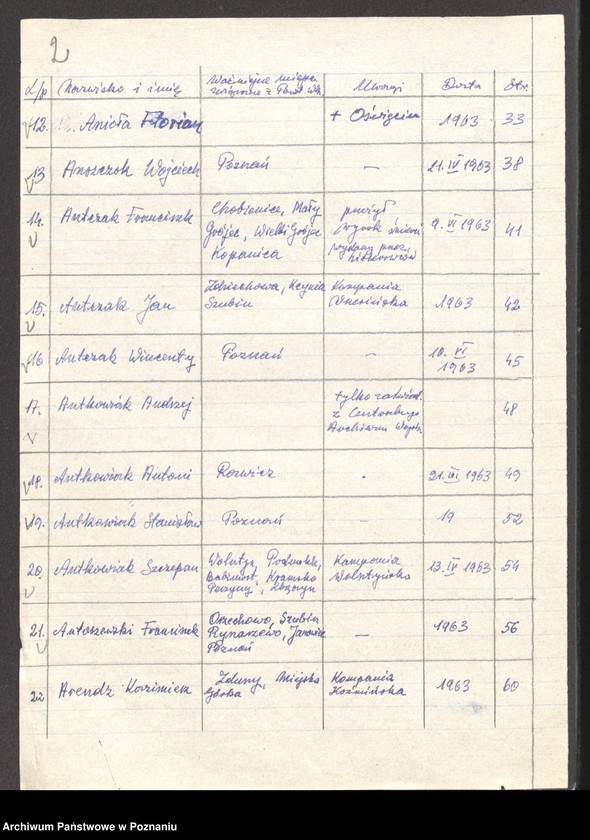 2
L/p Nazwisko i imię Ważniejsze miejsc. związane z Powst. Wlk. Uwagi Data Str.
12. Anioła Florian + Oświęcim 1963 33
13 Anoszczok Wojciech Poznań — 21.IV 1963 38
14. Antczak Franciszek Chobienice, Mały
Grójec, Wielki Grójec
Kopanica
przeżył
wyrok śmierci
wydany przez
hitlerowców
9. VI 1963 41
15. Antczak Jan Zdziechowa, Kcynia
Szubin
Kompania
Wrzesińska
1963 42
16 Antczak Wincenty Poznań — 10. VI
1963 45
17. Antkowiak Andrzej tylko
z Centralnego
Archiwum Wojsk.
48
18. Antkowiak Antoni Rawicz - 21. III 1963 49
19. Antkowiak Stanisław Poznań . 19 52
20. Antkowiak Szczepan Wolsztyn,
Babimost, Kramsko
Zbąszyń
Kampania
Wolsztyńska
13. IV 1963 54
21. Antoszewski Franciszek Orzechowo, Szubin
Rynarzewo, Janowiec
Poznań
— 1963 56
22 Arendz Kazimierz Zduny, Miejska
Górka
Kompania
Koźmińska
1963 60
Archiwum Państwowe w Poznaniu